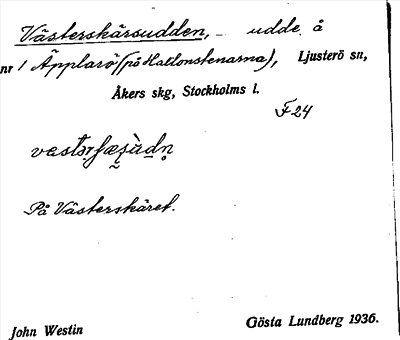 Västerskärsudden, udde å
nr 1 Äpplarö (på Hallonstenarna), Ljusterö sn,
Åkers skg, Stockholms l.
F 24
På Västerskäret.
John Westin Gösta Lundberg 1936.